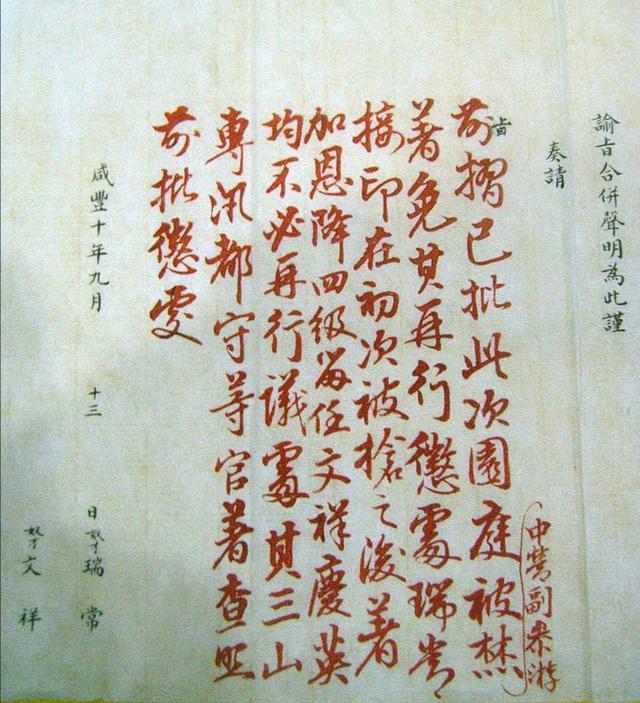 諭旨合併聲明為此謹
奏請
旨
前摺已批此次園庭被焚
中營副叅游
著免其再行懲處瑞常
接印在初次被搶之後著
加恩降四級留任文祥慶英
均不必再行議處其三山
專汛都守等官著查照
前批懲處
咸豐十年九月 十三 日奴才瑞常
奴才文祥